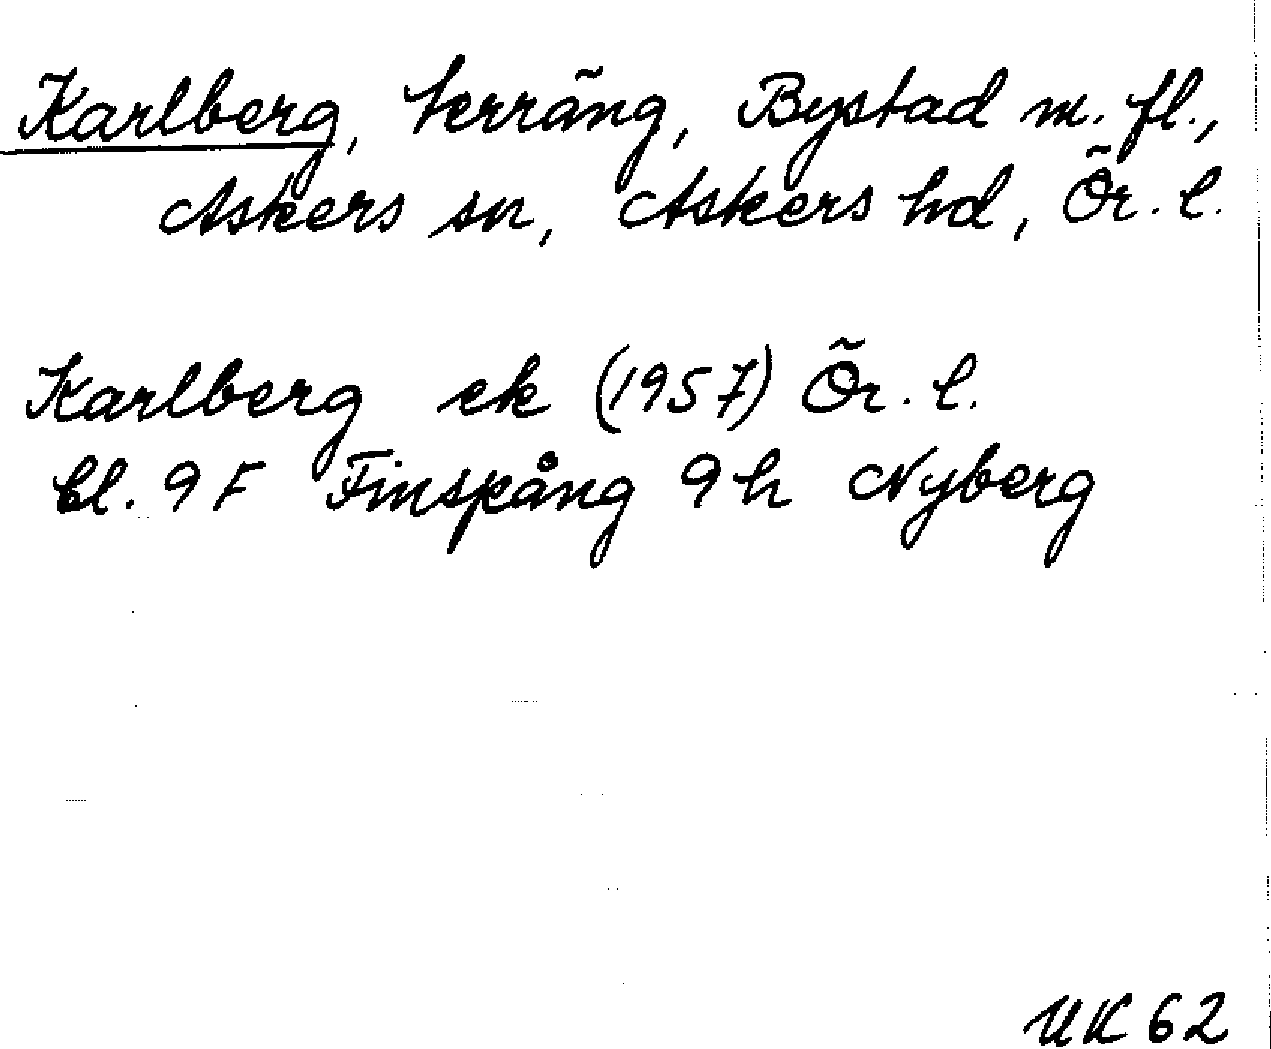 Karlberg, terräng, Bystad m. fl.,
Askers sn, Askers hd, Ör. l.
Karlberg ek (1957) Ör. l.
bl. 9 F Finspång 9 h Nyberg
UK 62